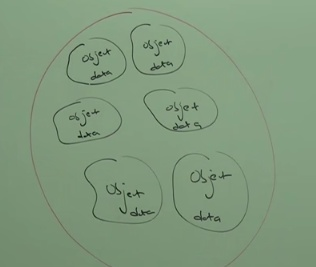 object
data
object
data
object
data
object
data
object
data
object
data